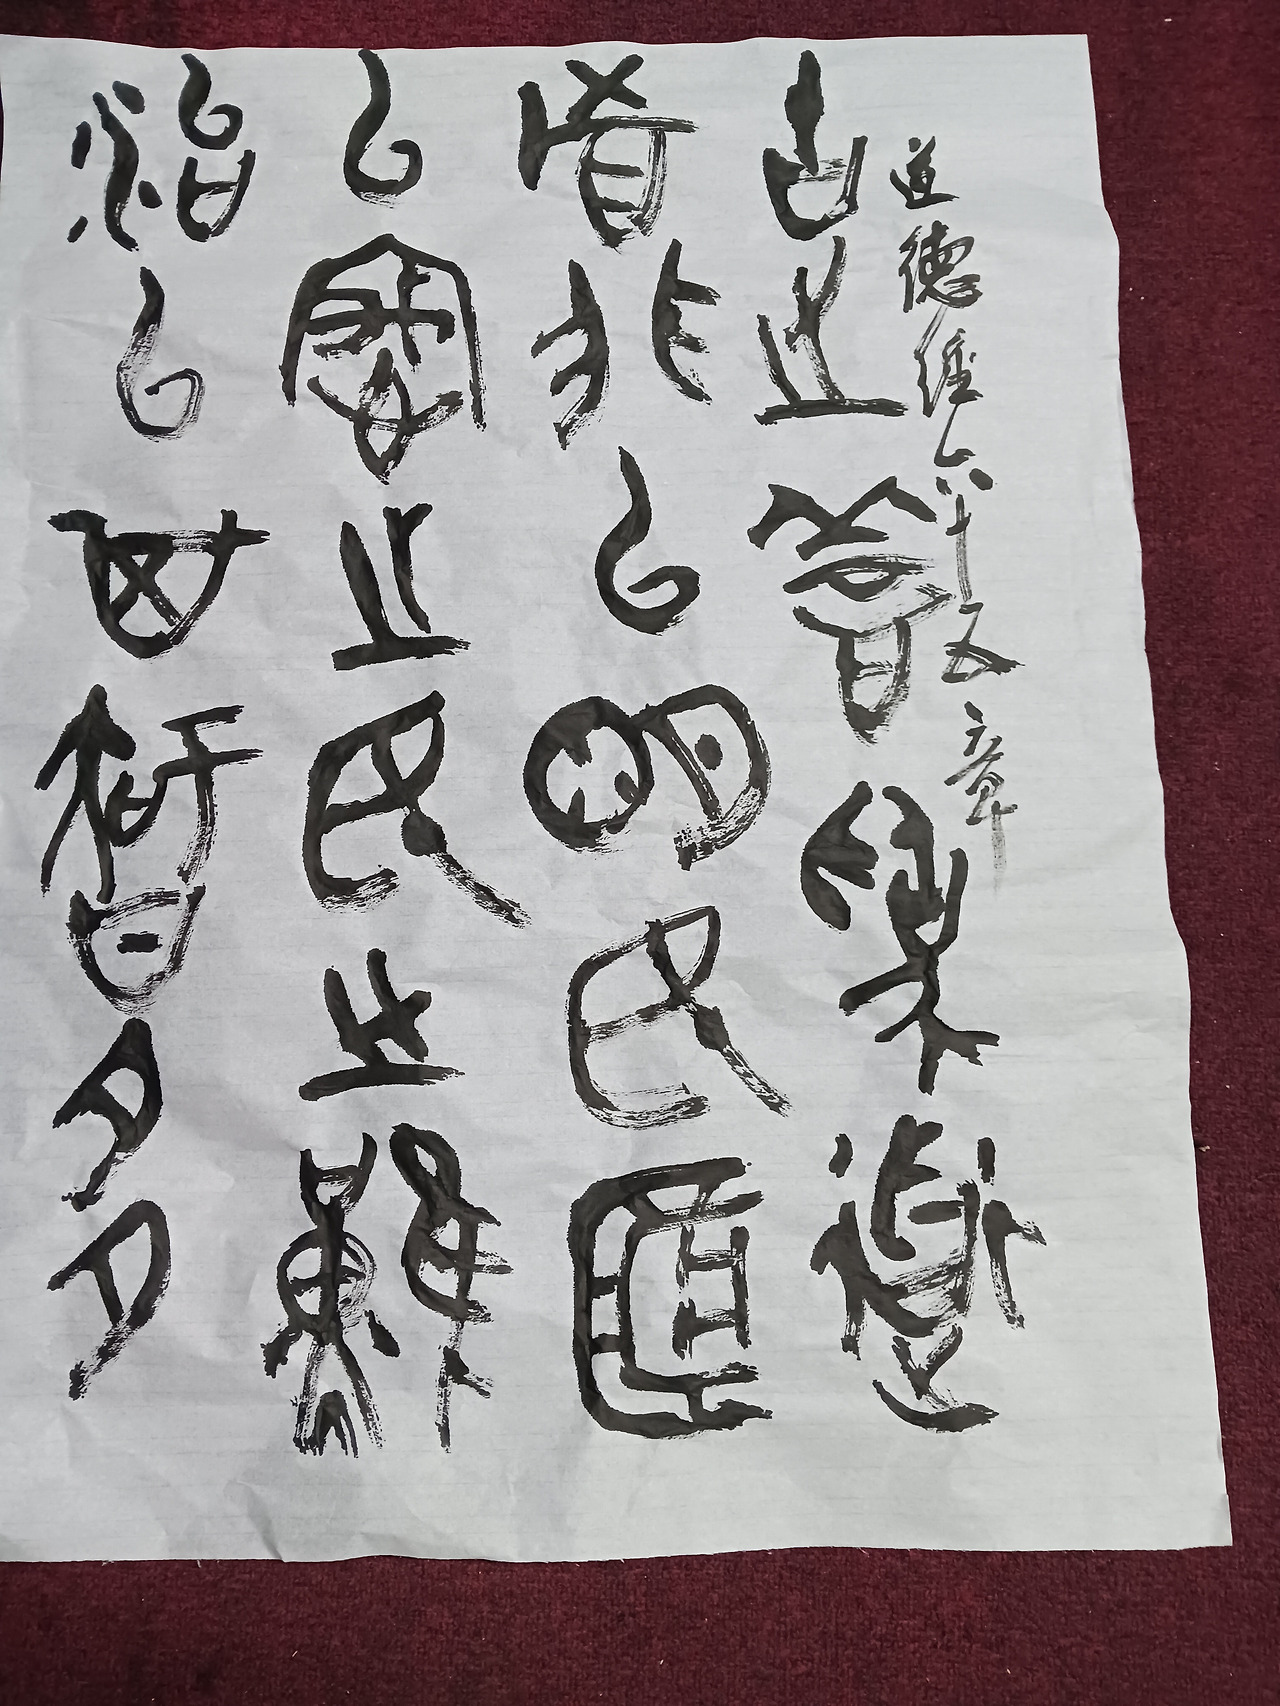 道德經六十五章
古之善為道
者非以明民將
以愚之民之難
治以其智多